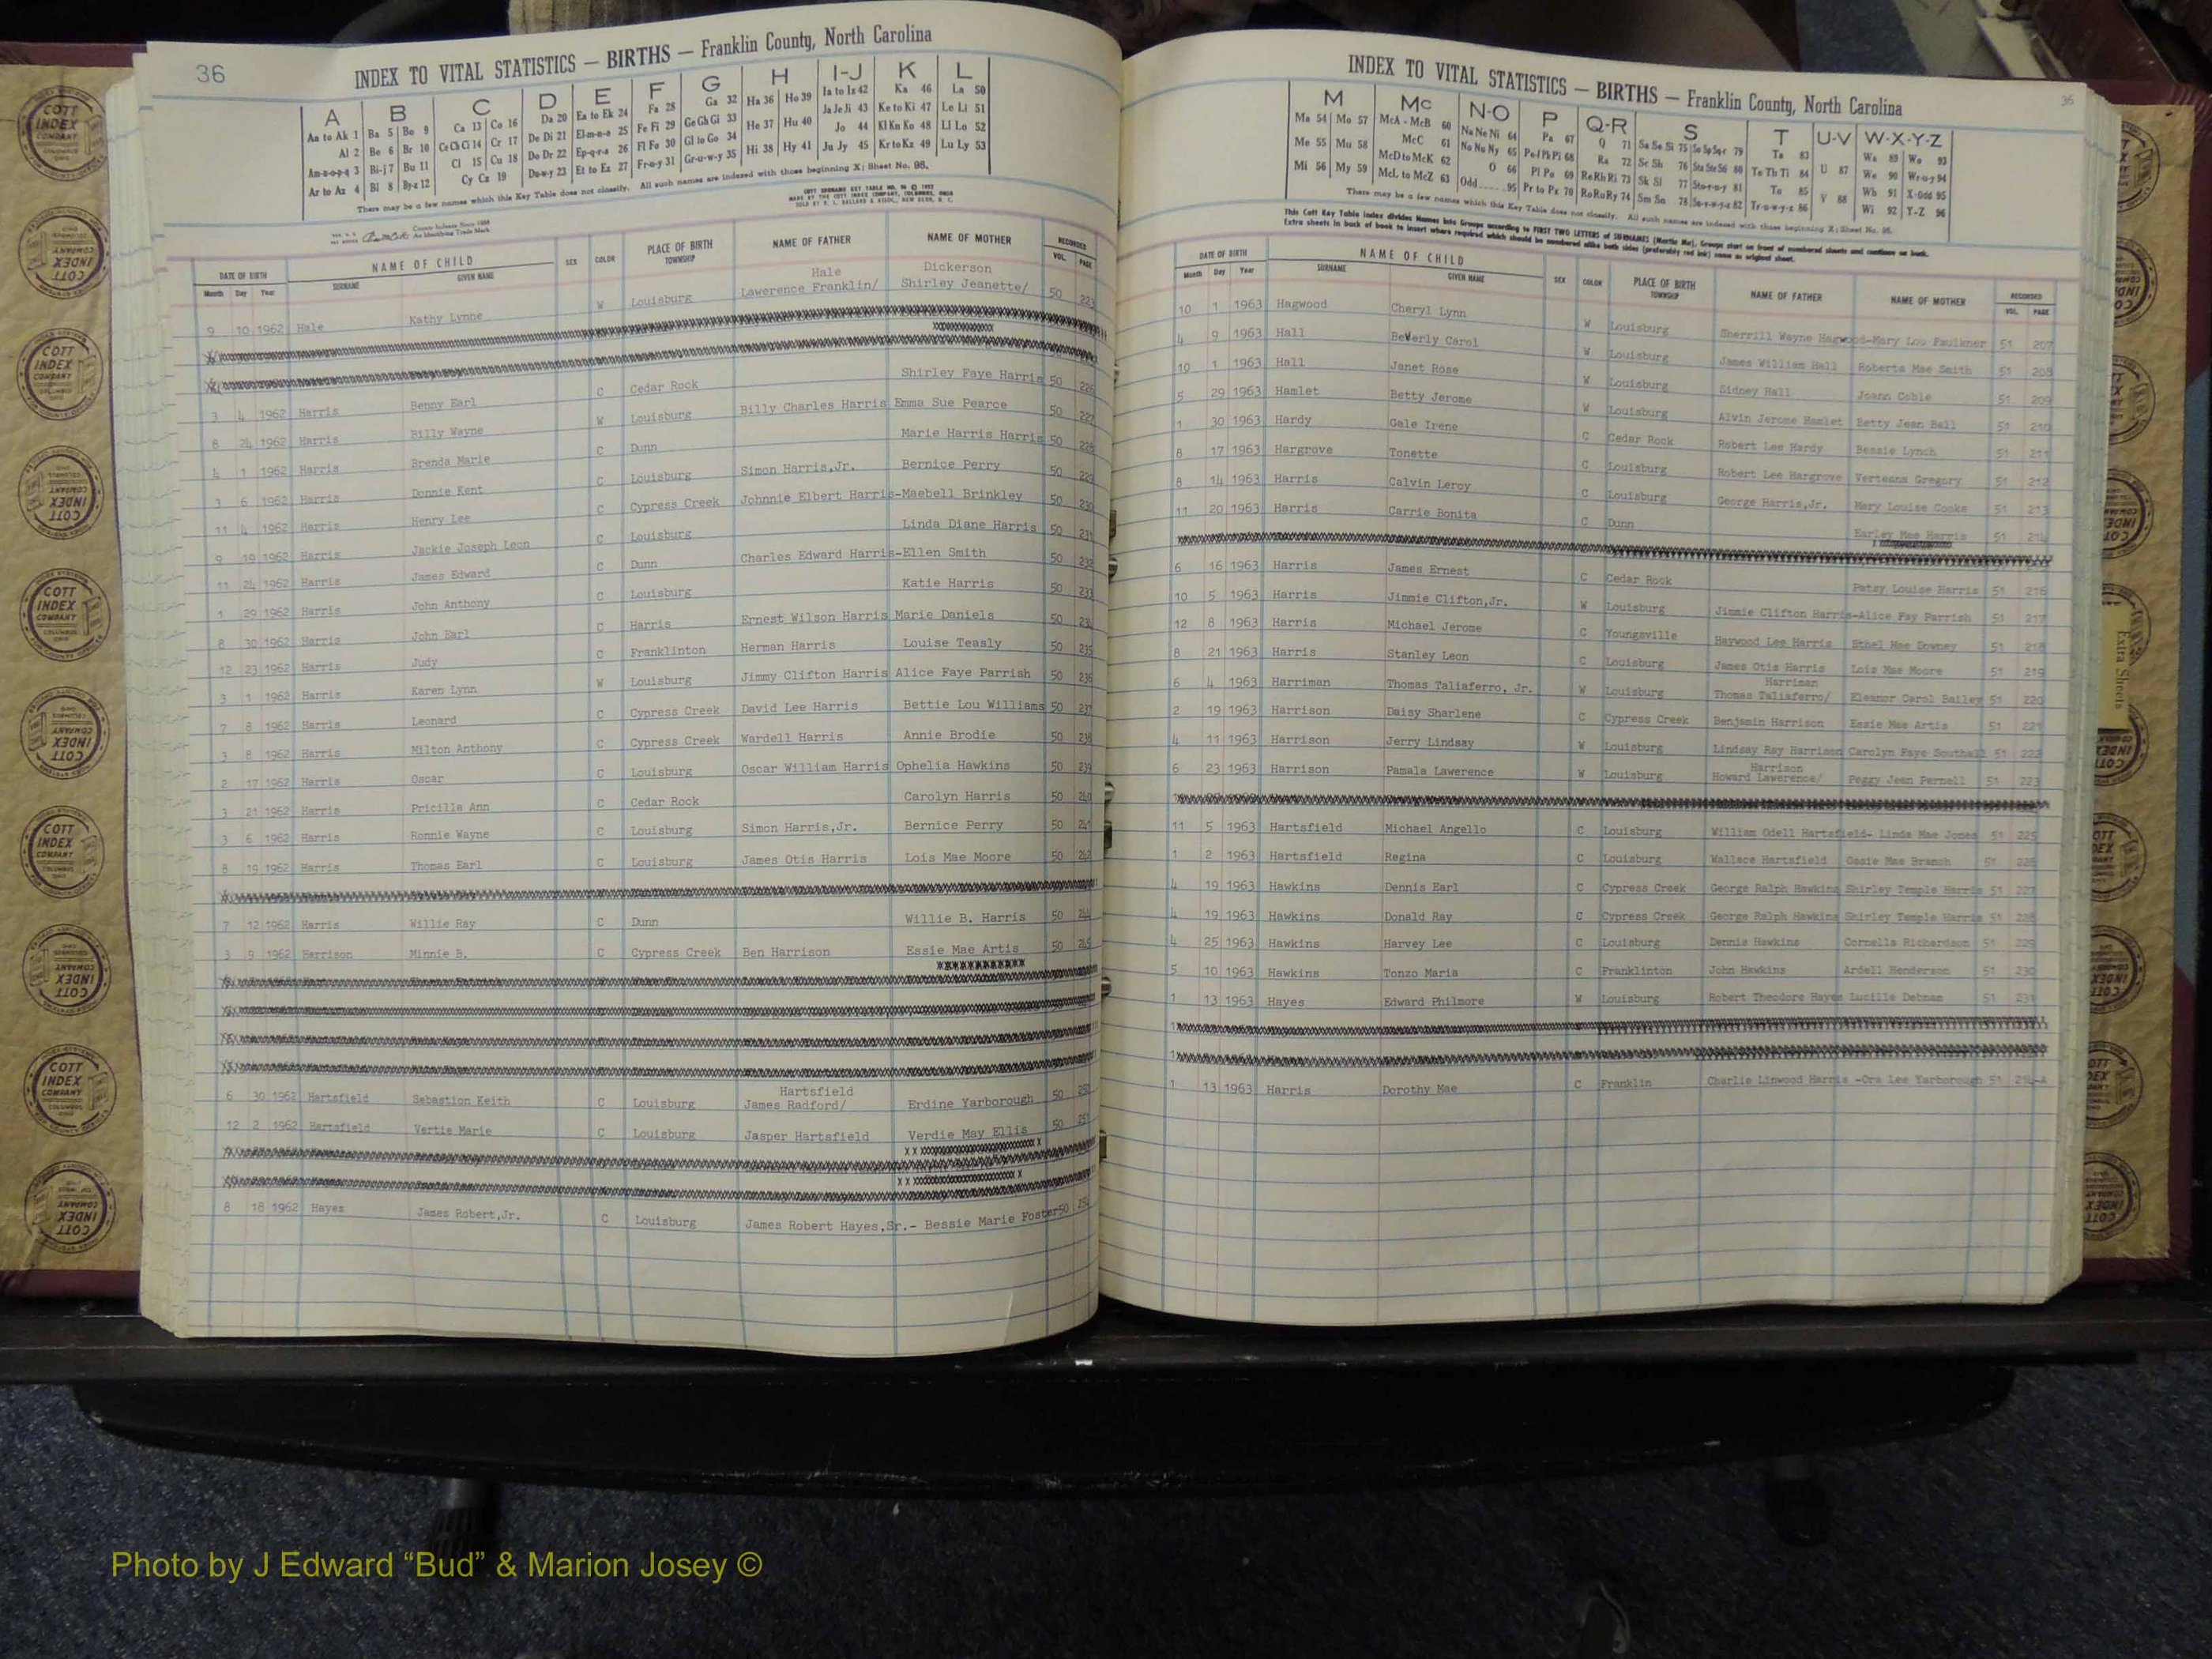 36
INDEX TO VITAL STATISTICS — BIRTHS — Franklin County, North Carolina
A B C D E F G H I-J K L
Aa to Ak 1 Ba 5 Bo 9 Ca 13 Co 16 Da 20 Ea to Ek 24 Fa 28 Ga 32 Ha 36 Ho 39 Ia to Iz 42 Ka 46 La 50
Al 2 Be 6 Br 10 Ce Ch Ci 14 Cr 17 De Di 21 El-m-n-o 25 Fe Fi 29 Ge Gh Gi 33 He 37 Hu 40 Ja Je Ji 43 Ke to Ki 47 Le Li 51
Am-n-o-p-q 3 Bi-j 7 Bu 11 Cl 15 Cu 18 Do Dr 22 Ep-q-r-s 26 Fl Fo 30 Gl to Go 34 Hi 38 Hy 41 Jo 44 Kl Kn Ko 48 Ll Lo 52
Ar to Az 4 Bl 8 By-z 12 Cy Cz 19 Du-w-y 23 Et to Ez 27 Fr-u-y 31 Gr-u-w-y 35 Ju Jy 45 Kr to Kz 49 Lu Ly 53
There may be a few names which this Key Table does not classify. All such names are indexed with those beginning X; Sheet No. 95.
DATE OF BIRTH NAME OF CHILD SEX COLOR PLACE OF BIRTH NAME OF FATHER NAME OF MOTHER RECORDED
Month Day Year SURNAME GIVEN NAME TOWNSHIP VOL. PAGE
Hale Dickerson
9 10 1962 Hale Kathy Lynne W Louisburg Lawerence Franklin/ Shirley Jeanette/ 50 223
3 4 1962 Harris Benny Earl C Cedar Rock Shirley Faye Harris 50 226
8 24 1962 Harris Billy Wayne W Louisburg Billy Charles Harris Emma Sue Pearce 50 227
4 1 1962 Harris Brenda Marie C Dunn Marie Harris Harris 50 228
3 6 1962 Harris Donnie Kent C Louisburg Simon Harris,Jr. Bernice Perry 50 229
11 4 1962 Harris Henry Lee C Cypress Creek Johnnie Elbert Harris-Maebell Brinkley 50 230
9 19 1962 Harris Jackie Joseph Leon C Louisburg Linda Diane Harris 50 231
11 24 1962 Harris James Edward C Dunn Charles Edward Harris-Ellen Smith 50 232
1 29 1962 Harris John Anthony C Louisburg Katie Harris 50 233
8 30 1962 Harris John Earl C Harris Ernest Wilson Harris Marie Daniels 50 234
12 23 1962 Harris Judy C Franklinton Herman Harris Louise Teasly 50 235
3 1 1962 Harris Karen Lynn W Louisburg Jimmy Clifton Harris Alice Faye Parrish 50 236
7 8 1962 Harris Leonard C Cypress Creek David Lee Harris Bettie Lou Williams 50 237
3 8 1962 Harris Milton Anthony C Cypress Creek Wardell Harris Annie Brodie 50 238
2 17 1962 Harris Oscar C Louisburg Oscar William Harris Ophelia Hawkins 50 239
3 21 1962 Harris Pricilla Ann C Cedar Rock Carolyn Harris 50 240
3 6 1962 Harris Ronnie Wayne C Louisburg Simon Harris,Jr. Bernice Perry 50 241
8 19 1962 Harris Thomas Earl C Louisburg James Otis Harris Lois Mae Moore 50 242
7 12 1962 Harris Willie Ray C Dunn Willie B. Harris 50 244
3 9 1962 Harrison Minnie B. C Cypress Creek Ben Harrison Essie Mae Artis 50 245
Hartsfield
6 30 1962 Hartsfield Sebastion Keith C Louisburg James Radford/ Erdine Yarborough 50 250
12 2 1962 Hartsfield Vertie Marie C Louisburg Jasper Hartsfield Verdie May Ellis 50 251
8 18 1962 Hayes James Robert,Jr. C Louisburg James Robert Hayes,Sr.- Bessie Marie Foster 50 254
36
INDEX TO VITAL STATISTICS — BIRTHS — Franklin County, North Carolina
M Mc N-O P Q-R S T U-V W-X-Y-Z
Ma 54 Mo 57 McA - McB 60 Na Ne Ni 64 Pa 67 Q 71 Sa Se Si 75 So Sp Sq-r 79 Ta 83 U 87 Wa 89 Wo 93
Me 55 Mu 58 McC 61 No Nu Ny 65 Pe-f Ph Pi 68 Ra 72 Sc Sh 76 Sta Ste Sti 80 Te Th Ti 84 V 88 We 90 Wr-u-y 94
Mi 56 My 59 McD to McK 62 O 66 Pl Po 69 Re Rh Ri 73 Sk Sl 77 Sto-r-u-y 81 To 85 Wh 91 X-Odd 95
McL to McZ 63 Odd.....95 Pr to Pz 70 Ro Ru Ry 74 Sm Sn 78 Su-v-w-y-z 82 Tr-u-w-y-z 86 Wi 92 Y-Z 96
There may be a few names which this Key Table does not classify. All such names are indexed with those beginning X; Sheet No. 95.
This Cott Key Table Index divides Names into Groups according to FIRST TWO LETTERS of SURNAMES (Martin Ma), Groups start on front of numbered sheets and continues on back.
Extra sheets in back of book to insert where required which should be numbered alike both sides (preferably red ink) same as original sheet.
DATE OF BIRTH NAME OF CHILD SEX COLOR PLACE OF BIRTH NAME OF FATHER NAME OF MOTHER RECORDED
Month Day Year SURNAME GIVEN NAME TOWNSHIP VOL. PAGE
10 1 1963 Hagwood Cheryl Lynn W Louisburg Sherrill Wayne Hagwood-Mary Lou Faulkner 51 207
4 9 1963 Hall Beverly Carol W Louisburg James William Hall Roberta Mae Smith 51 208
10 1 1963 Hall Janet Rose W Louisburg Sidney Hall Joann Coble 51 209
5 29 1963 Hamlet Betty Jerome W Louisburg Alvin Jerome Hamlet Betty Jean Ball 51 210
1 30 1963 Hardy Gale Irene C Cedar Rock Robert Lee Hardy Bessie Lynch 51 211
8 17 1963 Hargrove Tonette C Louisburg Robert Lee Hargrove Verteans Gregory 51 212
8 14 1963 Harris Calvin Leroy C Louisburg George Harris,Jr. Mary Louise Cooke 51 213
11 20 1963 Harris Carrie Bonita C Dunn Earley Mae Harris 51 214
6 16 1963 Harris James Ernest C Cedar Rock Patsy Louise Harris 51 216
10 5 1963 Harris Jimmie Clifton,Jr. W Louisburg Jimmie Clifton Harris-Alice Fay Parrish 51 217
12 8 1963 Harris Michael Jerome C Youngsville Haywood Lee Harris Ethel Mae Downey 51 218
8 21 1963 Harris Stanley Leon C Louisburg James Otis Harris Lois Mae Moore 51 219
Harriman
6 4 1963 Harriman Thomas Taliaferro, Jr. W Louisburg Thomas Taliaferro/ Eleanor Carol Bailey 51 220
2 19 1963 Harrison Daisy Sharlene C Cypress Creek Benjamin Harrison Essie Mae Artis 51 221
4 11 1963 Harrison Jerry Lindsay W Louisburg Lindsay Ray Harrison Carolyn Faye Southall 51 222
Harrison
6 23 1963 Harrison Pamala Lawerence W Louisburg Howard Lawerence/ Peggy Jean Pernell 51 223
11 5 1963 Hartsfield Michael Angello C Louisburg William Odell Hartsfield- Linda Mae Jones 51 225
1 2 1963 Hartsfield Regina C Louisburg Wallace Hartsfield Ossie Mae Branch 51 226
4 19 1963 Hawkins Dennis Earl C Cypress Creek George Ralph Hawkins Shirley Temple Harris 51 227
4 19 1963 Hawkins Donald Ray C Cypress Creek George Ralph Hawkins Shirley Temple Harris 51 228
4 25 1963 Hawkins Harvey Lee C Louisburg Dennis Hawkins Cornelia Richardson 51 229
5 10 1963 Hawkins Tonzo Maria C Franklinton John Hawkins Ardell Henderson 51 230
1 13 1963 Hayes Edward Philmore W Louisburg Robert Theodore Hayes Lucille Debnam 51 231
1 13 1963 Harris Dorothy Mae C Franklin Charlie Linwood Harris -Ora Lee Yarborough 51 214-A
Extra Sheets
COTT INDEX COMPANY
Photo by J Edward “Bud” & Marion Josey ©